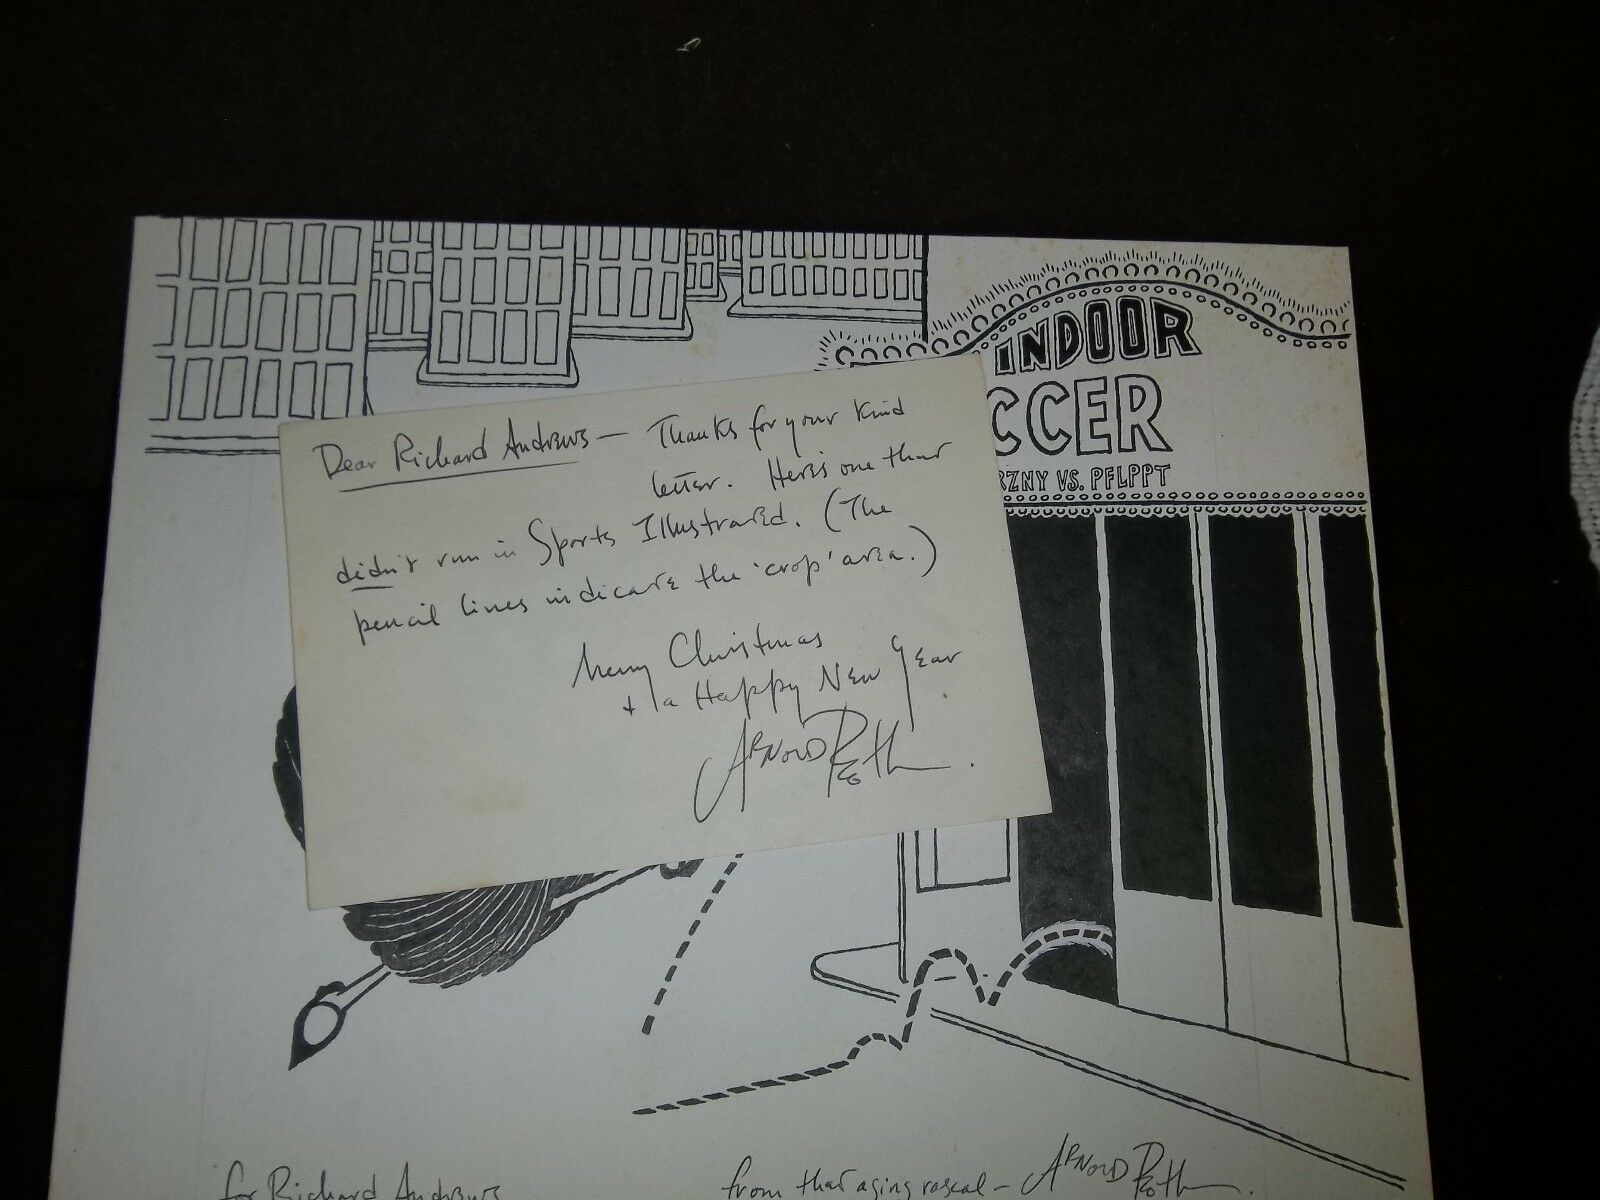 INDOOR
CCER
RZNY VS. PFLPPT
Dear Richard Andrews — Thanks for your kind
letter. Here's one that
didn't run in Sports Illustrated. (The
pencil lines indicate the 'crop' area.)
Merry Christmas
+ a Happy New Year
Arnold Roth.
for Richard Andrews
from that aging rascal – Arnold Roth.